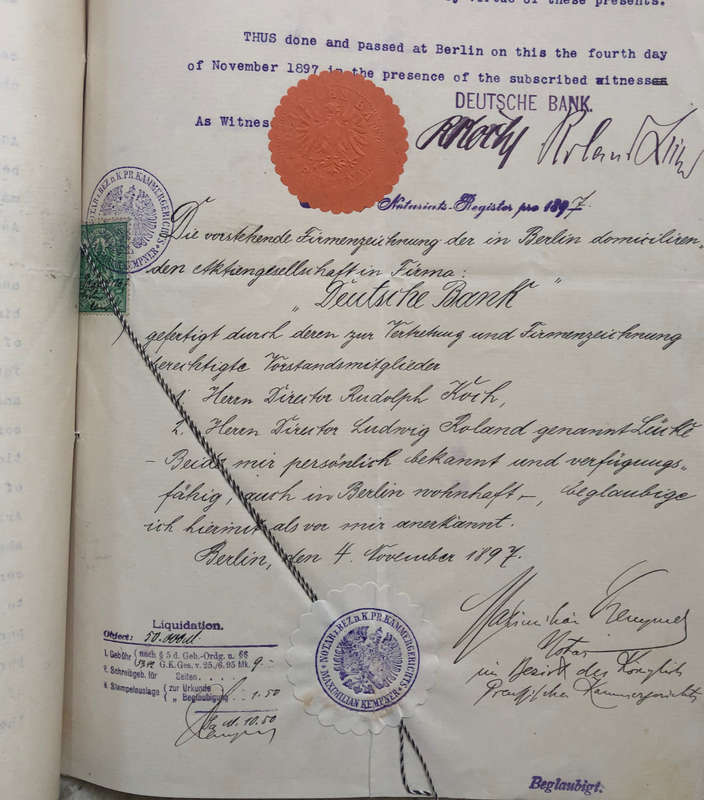 by virtue of these presents.
THUS done and passed at Berlin on this the fourth day
of November 1897 in the presence of the subscribed witness
DEUTSCHE BANK.
As Witnes
RKoch Roland Lücke
Notariats-Register pro 1897.
NOTAR I. BEZ. D. K. PR. KAMMERGERICHTS
KEMPNER
Die vorstehende Firmenzeichnung der in Berlin domiciliren-
den Aktiengesellschaft in Firma:
„Deutsche Bank"
gefertigt durch deren zur Vertretung und Firmenzeichnung
berechtigte Vorstandsmitglieder
1. Herrn Director Rudolph Koch,
2. Herrn Director Ludwig Roland genannt Lücke
- Beide mir persönlich bekannt und verfügungs-
fähig, auch in Berlin wohnhaft -, beglaubige
ich hiermit als vor mir anerkannt.
Berlin, den 4. November 1897.
Maximilian Kempner
Notar
im Bezirk des Königlich
Preußischen Kammergerichts
NOTAR I. BEZ. D. K. PR. KAMMERGERICHTS
MAXIMILIAN KEMPNER
Liquidation.
Object: 50.000 M.
1. Gebühr nach § 5 d. Geb.-Ordg. u. 66
G.K.Ges. v. 25./6. 95 Mk. 9.-
Schreibgeb. für Seiten . . . .
Stempelauslage zur Urkunde
„ Beglaubigung 1.50
M. 10.50
Kempner
Beglaubigt: